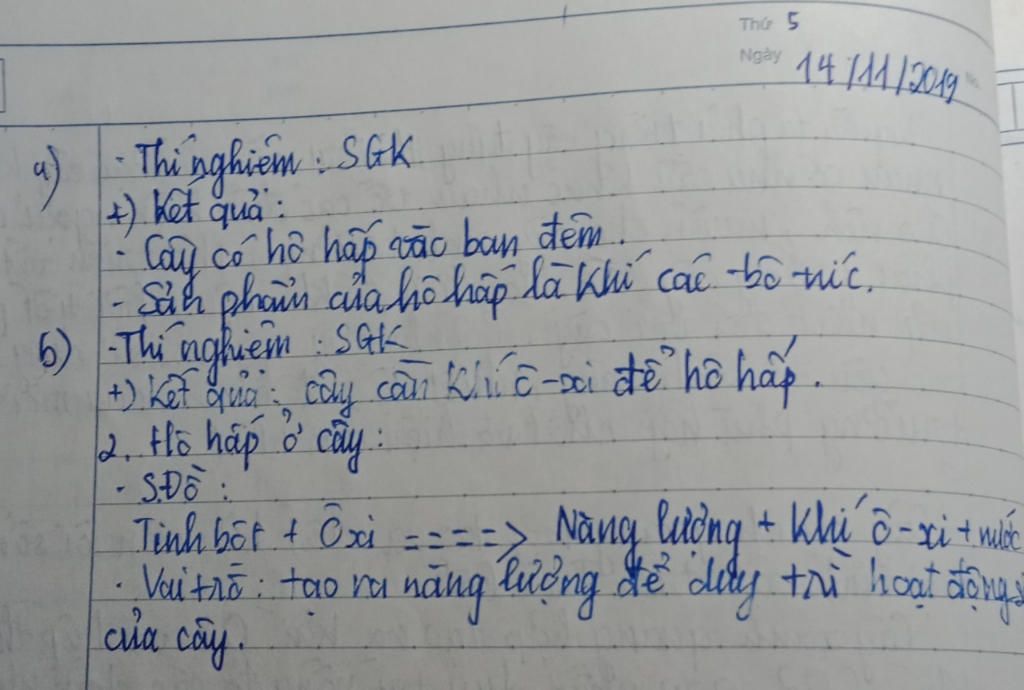 Thứ 5
Ngày 14/11/2019
a) - Thí nghiệm : SGK
+) Kết quả :
- Cây có hô hấp vào ban đêm.
- Sản phẩm của hô hấp là khí các-bô-níc.
b) - Thí nghiệm : SGK
+) Kết quả : cây cần khí ô-xi để hô hấp.
2. Hô hấp ở cây :
- S.Đồ :
Tinh bột + Ôxi ====> Năng lượng + Khí ô-xi + nước
- Vai trò : tạo ra năng lượng để duy trì hoạt động
của cây.